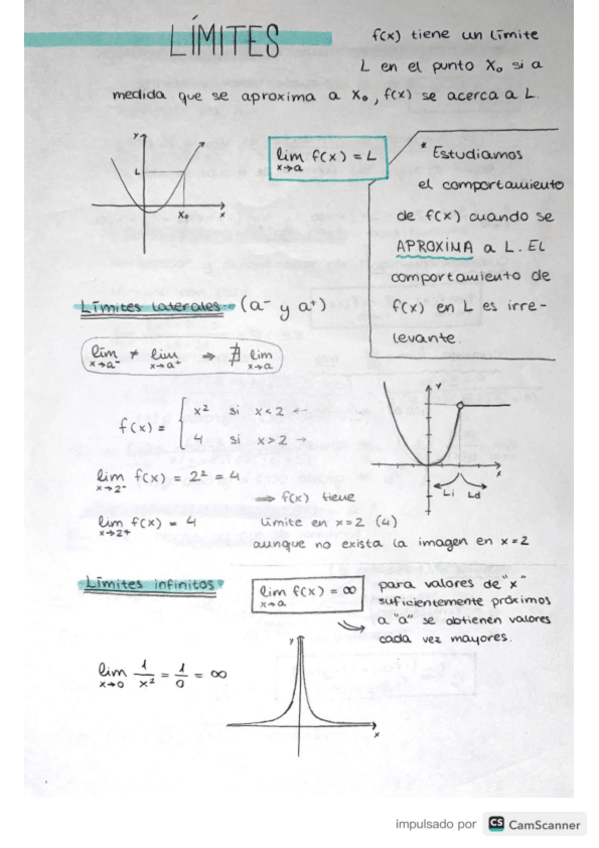 LÍMITES
f(x) tiene un límite
L en el punto X₀ si a
medida que se aproxima a X₀, f(x) se acerca a L.
y
L
X₀
x
lim f(x) = L
x→a
* Estudiamos
el comportamiento
de f(x) cuando se
APROXIMA a L. EL
comportamiento de
f(x) en L es irre-
levante.
Límites laterales (a⁻ y a⁺)
lim ≠ lim ⇒ ∄ lim
x→a⁻ x→a⁺ x→a
f(x) = { x² si x<2 ←
4 si x>2 →
y
x
Li Ld
lim f(x) = 2² = 4
x→2⁻
⇒ f(x) tiene
lim f(x) = 4
x→2+
límite en x=2 (4)
aunque no exista la imagen en x=2
Límites infinitos
lim f(x) = ∞
x→a
para valores de "x"
suficientemente próximos
a "a" se obtienen valores
cada vez mayores.
lim 1/x² = 1/0 = ∞
x→0
y
x
impulsado por CS CamScanner